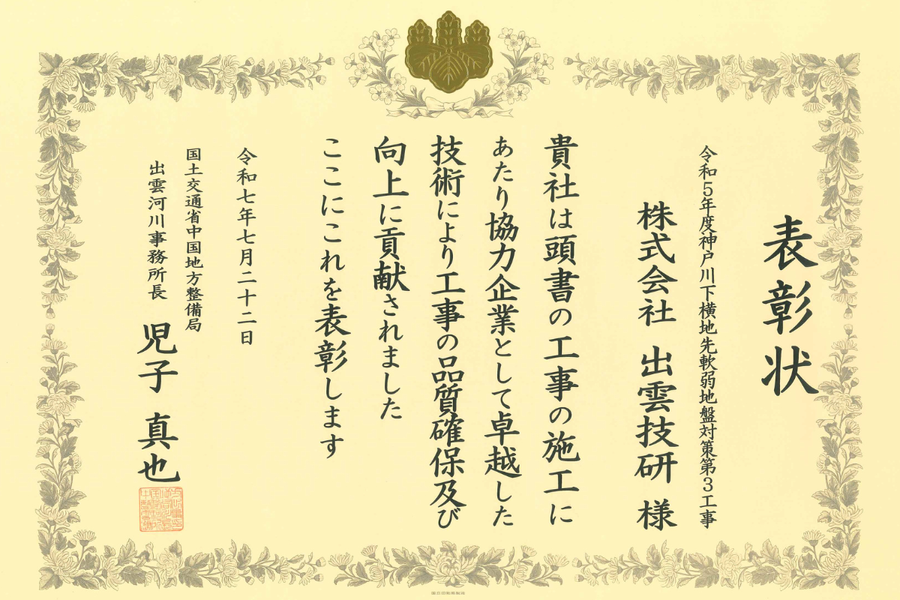 表彰状
令和5年度神戸川下横地先軟弱地盤対策第3工事
株式会社 出雲技研 様
貴社は頭書の工事の施工に
あたり協力企業として卓越した
技術により工事の品質確保及び
向上に貢献されました
ここにこれを表彰します
令和七年七月二十二日
国土交通省中国地方整備局
出雲河川事務所長
児子 真也